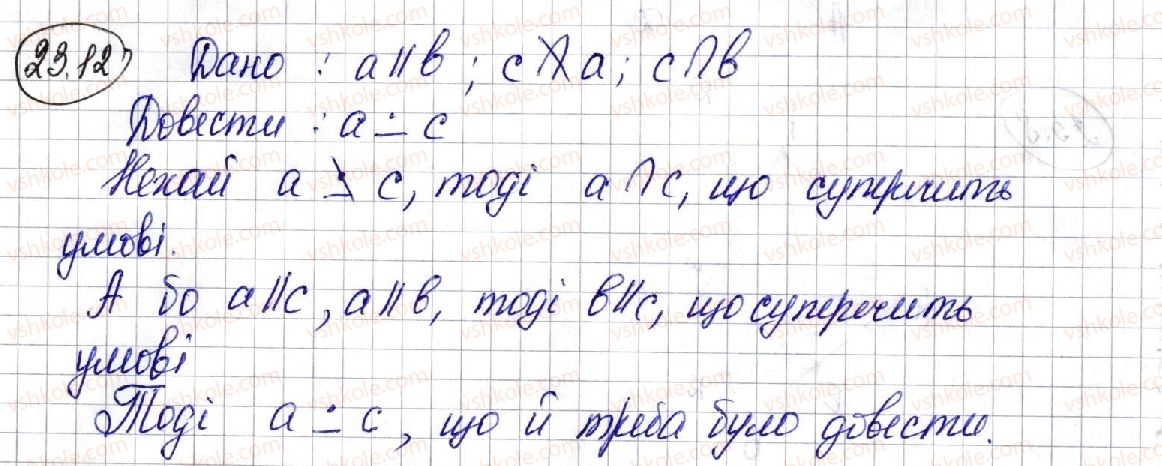 23.12 Дано : a∥b ; c∩̸a ; c∩b
Довести : a ∸ c
Нехай a ∸̸ c, тоді a∩c, що суперечить
умові.
А бо a∥c, a∥b, тоді b∥c, що суперечить
умові
Тоді a ∸ c, що й треба було довести.